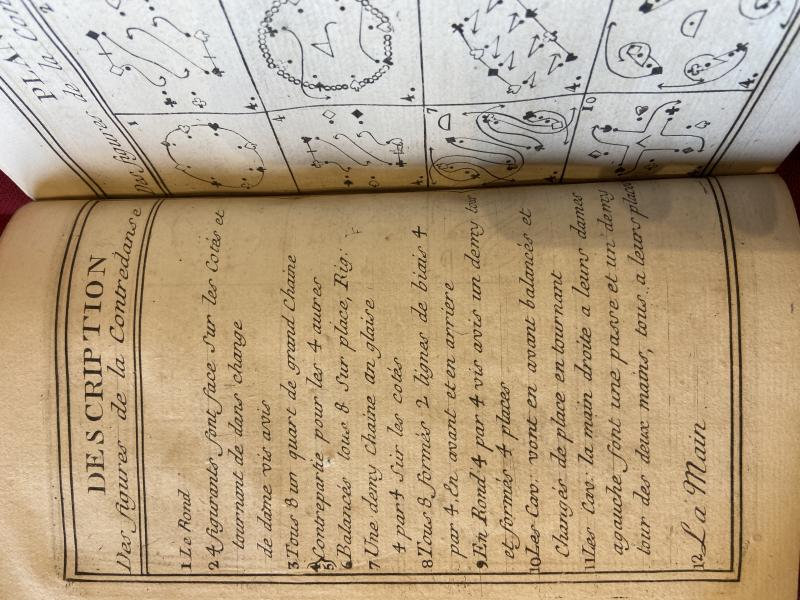 DESCRIPTION
Des figures de la Contredanse
1 Le Rond
2 4 figurants font face sur les Cotés et
tournant de dans change
de dame vis avis
3 Tous 8 un quart de grand Chaine
4 Contrepartie pour les 4 aures
5
6 Balancés tous 8 sur place, Rig:
7 Une demy chaine an glaise
4 par 4 sur les cotés
8 Tous 8 formés 2 lignes de biais 4
par 4. En avant et en arriere
9 En Rond 4 par 4 vis avis un demy tour
et formés 4 places
10 Les Cav: vont en avant balancés et
Changés de place en tournant
11 Les Cav: la main droite a leurs dames
agauche font une passe et un demy
tour des deux mains, tous a leurs place
12 La Main
PLA
figures de la Con
1
2
4.
4
4.
7
4.
10
4.